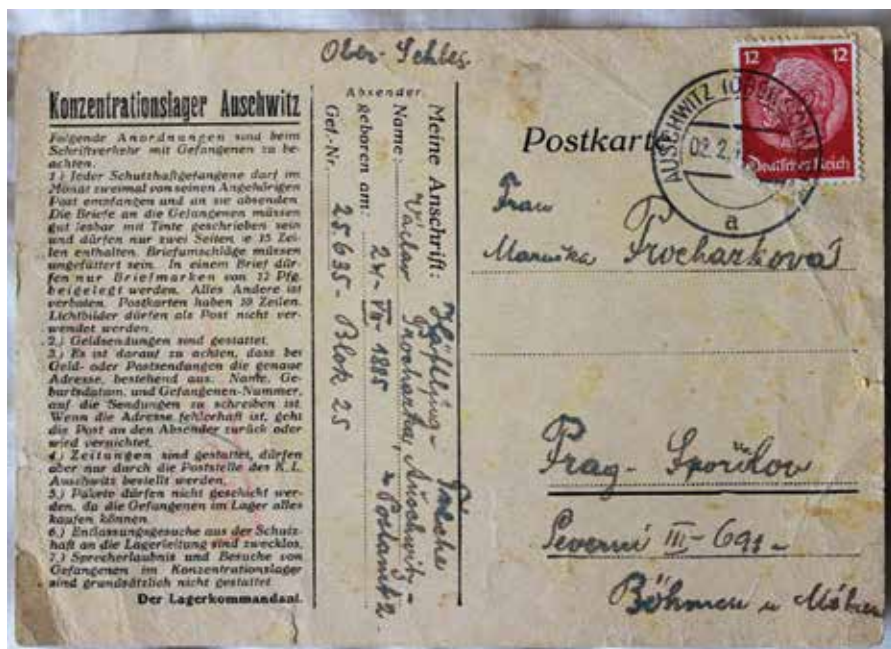 Ober-Schles.
Konzentrationslager Auschwitz
Folgende Anordnungen sind beim
Schriftverkehr mit Gefangenen zu be-
achten.
1.) Jeder Schutzhaftgefangene darf im
Monat zweimal von seinen Angehörigen
Post empfangen und an sie absenden.
Die Briefe an die Gefangenen müssen
gut lesbar mit Tinte geschrieben sein
und dürfen nur zwei Seiten je 15 Zei-
len enthalten. Briefumschläge müssen
ungefüttert sein. In einem Brief dür-
fen nur Briefmarken von 12 Pfg.
beigelegt werden. Alles Andere ist
verboten. Postkarten haben 10 Zeilen.
Lichtbilder dürfen als Post nicht ver-
wendet werden.
2.) Geldsendungen sind gestattet.
3.) Es ist darauf zu achten, dass bei
Geld- oder Postsendungen die genaue
Adresse, bestehend aus: Name, Ge-
burtsdatum, und Gefangenen-Nummer,
auf die Sendungen zu schreiben ist.
Wenn die Adresse fehlerhaft ist, geht
die Post an den Absender zurück oder
wird vernichtet.
4.) Zeitungen sind gestattet, dürfen
aber nur durch die Poststelle des K. L.
Auschwitz bestellt werden.
5.) Pakete dürfen nicht geschickt wer-
den, da die Gefangenen im Lager alles
kaufen können.
6.) Entlassungsgesuche aus der Schutz-
haft an die Lagerleitung sind zwecklos.
7.) Sprecherlaubnis und Besuche von
Gefangenen im Konzentrationslager
sind grundsätzlich nicht gestattet.
Der Lagerkommandant.
Absender:
Meine Anschrift: Häftling-
Name: Václav Procházka, Auschwitz-
geboren am: 24-VII-1885 Postamt 2
Gef.-Nr. 25635-Blok 25
Postkarte
12 12
Deutsches Reich
AUSCHWITZ
02.2.
a
Frau
Procharková
Prag-Spořilov
Severní III-691-
Böhmen u